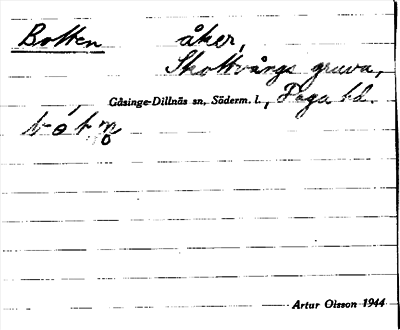 Botten åker,
Skottvångs gruva,
Gåsinge-Dillnäs sn, Söderm. l., Daga hd.
Artur Olsson 1944